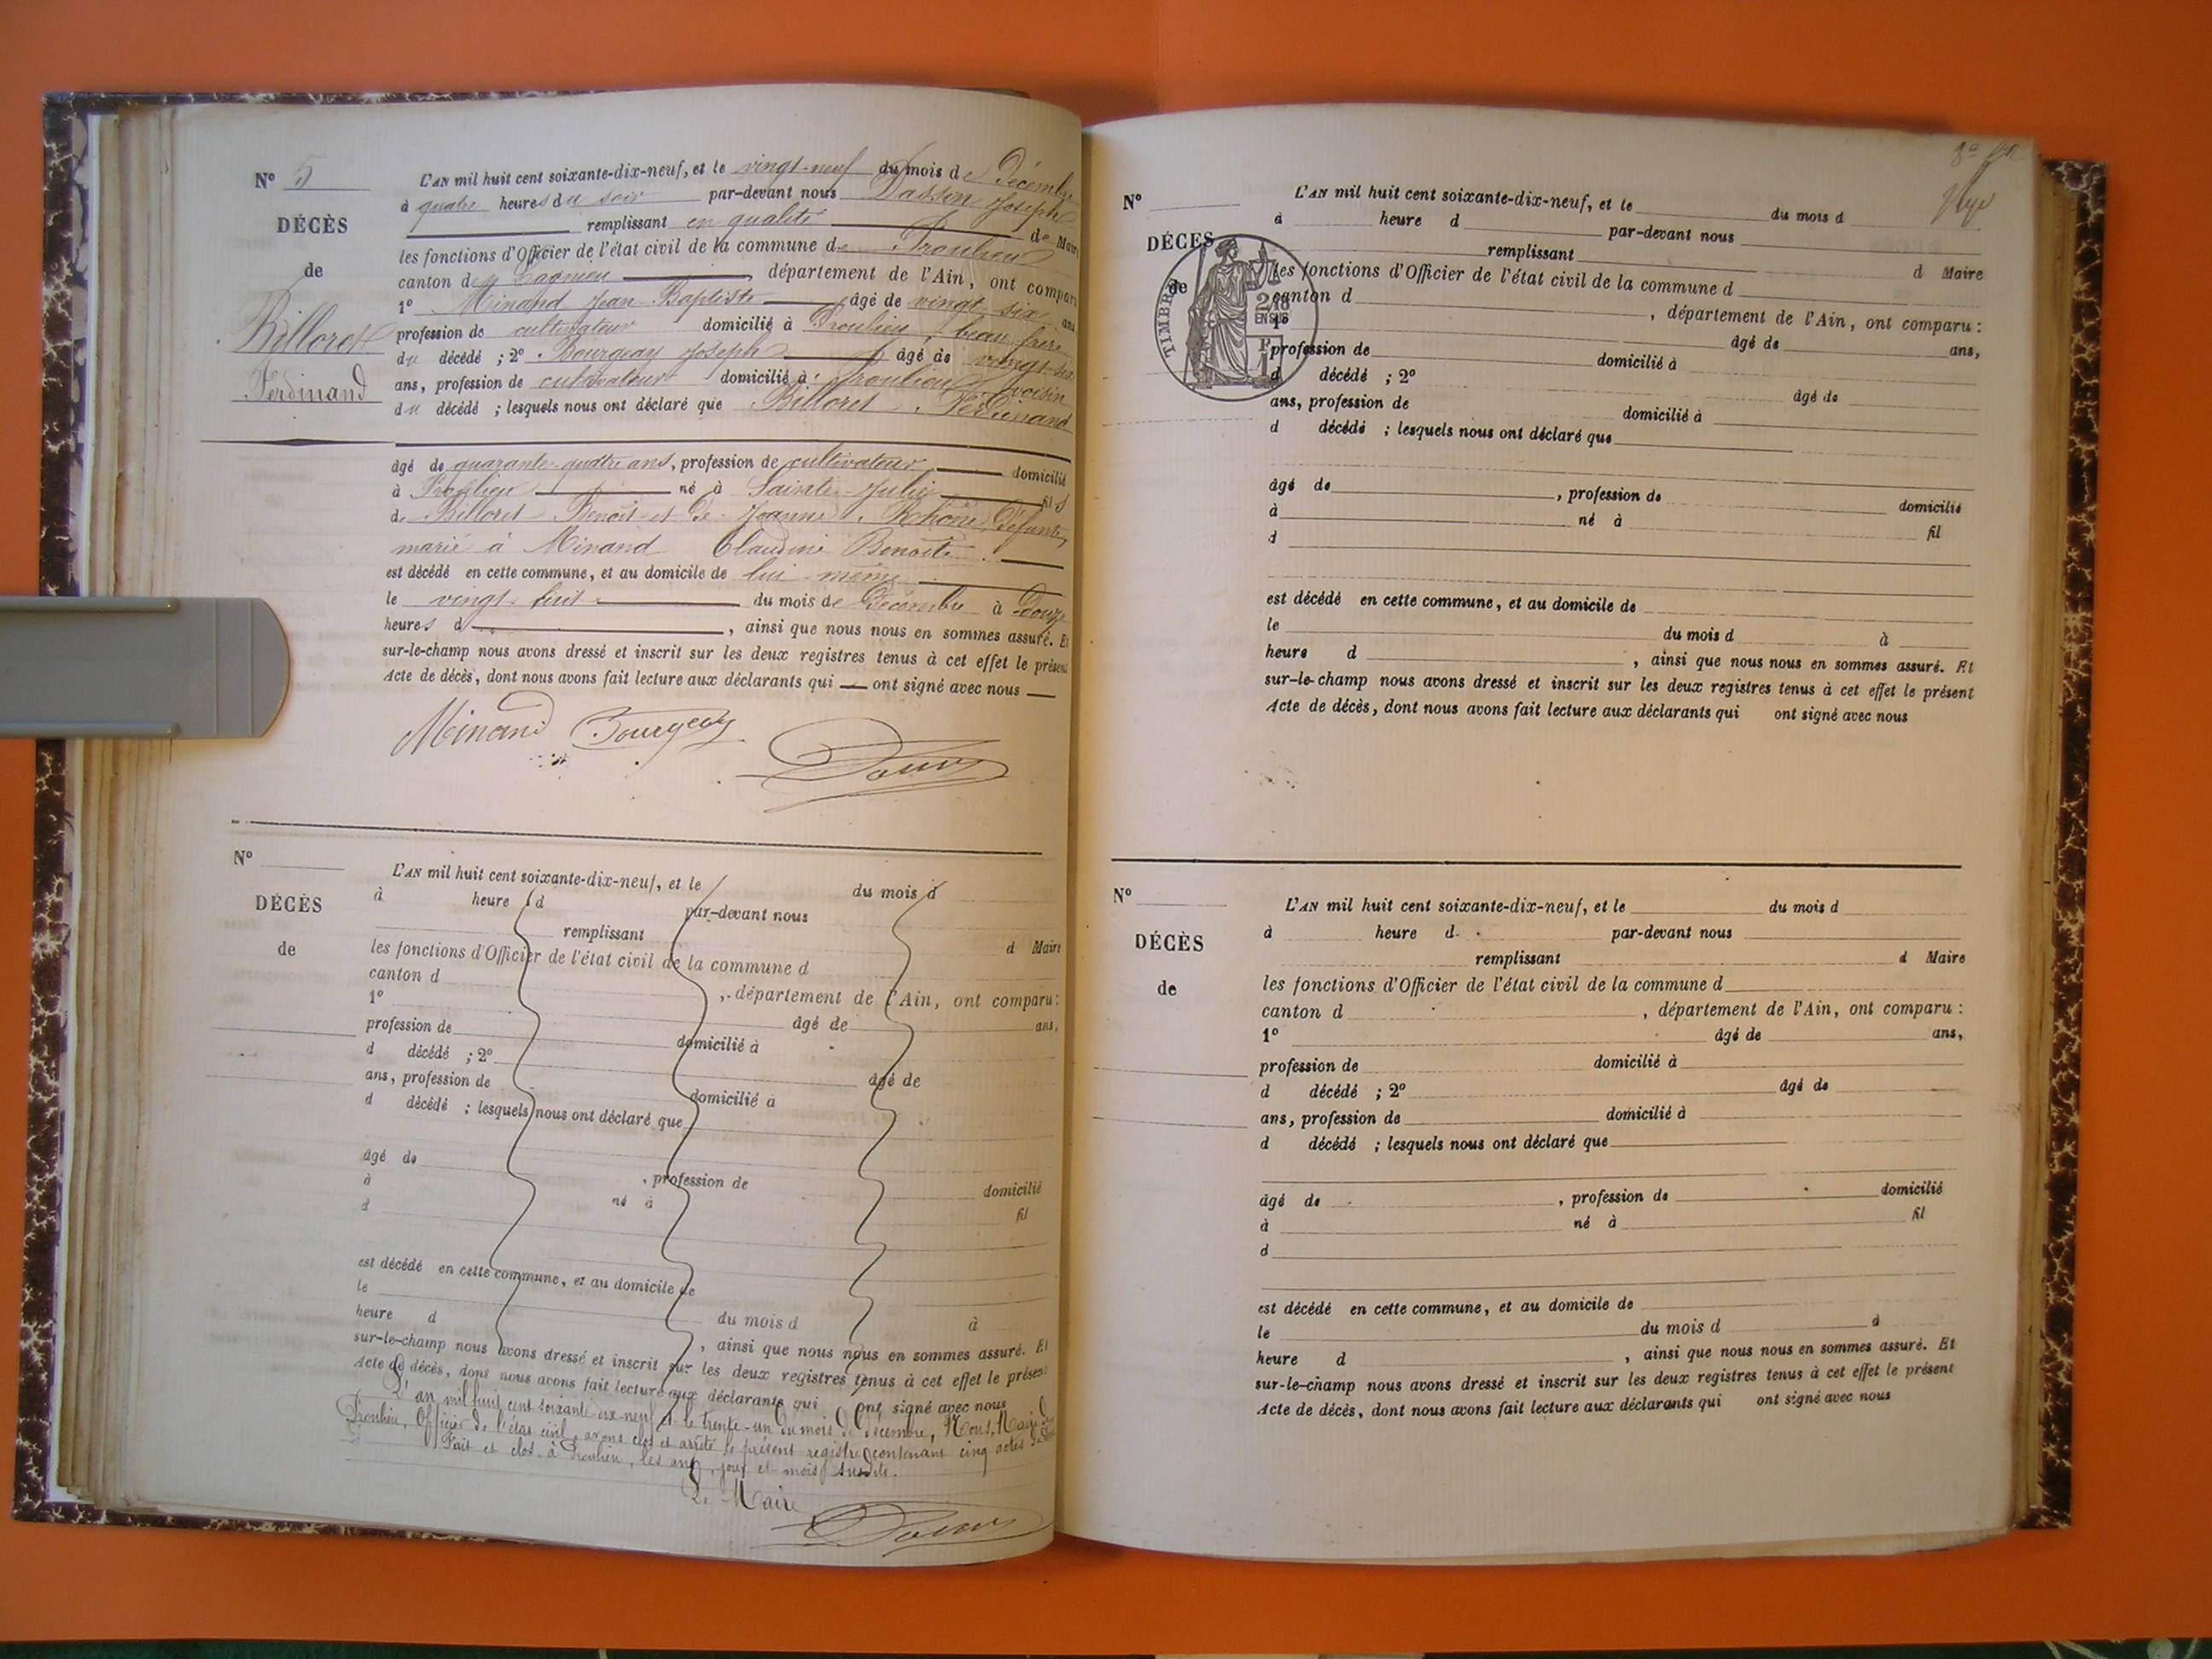 N° 5
DÉCÈS
de
Billoret
Ferdinand
L'AN mil huit cent soixante-dix-neuf, et le vingt-neuf du mois de Décembre
à quatre heures du soir par-devant nous Passin Joseph
remplissant en qualité de Maire
les fonctions d'Officier de l'état civil de la commune de Proulieu
canton de Lagnieu, département de l'Ain, ont comparu
1° Minand Jean-Baptiste âgé de vingt-six ans
profession de cultivateur domicilié à Proulieu beau frère
du décédé ; 2° Bourgeay Joseph âgé de vingt-six
ans, profession de cultivateur domicilié à Proulieu voisin
du décédé ; lesquels nous ont déclaré que Billoret Ferdinand
âgé de quarante-quatre ans, profession de cultivateur domicilié
à Proulieu né à Sainte-Julie fils
de Billoret Benoît et de Jeanne Rhône, défunts,
marié à Minand Claudine Benoite
est décédé en cette commune, et au domicile de lui-même
le vingt-huit du mois de Décembre à Douze
heures d , ainsi que nous nous en sommes assuré. Et
sur-le-champ nous avons dressé et inscrit sur les deux registres tenus à cet effet le présent
Acte de décès, dont nous avons fait lecture aux déclarants qui ont signé avec nous
Minand Bourgeay
N°
DÉCÈS
de
L'AN mil huit cent soixante-dix-neuf, et le du mois d
à heure d par-devant nous
remplissant d Maire
les fonctions d'Officier de l'état civil de la commune d
canton d , département de l'Ain, ont comparu :
1° âgé de ans,
profession de domicilié à
d décédé ; 2° âgé de
ans, profession de domicilié à
d décédé ; lesquels nous ont déclaré que
âgé de , profession de domicilié
à né à fil
d
est décédé en cette commune, et au domicile de
le du mois d à
heure d , ainsi que nous nous en sommes assuré. Et
sur-le-champ nous avons dressé et inscrit sur les deux registres tenus à cet effet le présent
Acte de décès, dont nous avons fait lecture aux déclarants qui ont signé avec nous
L'an mil huit cent soixante-dix-neuf et le trente-un du mois de décembre, Nous, Maire de
Proulieu, Officier de l'état civil, avons clos et arrêté le présent registre contenant cinq actes de
Fait et clos à Proulieu, les an, jour et mois susdits.
Le Maire
N°
DÉCÈS
de
TIMBRE
2/10
EN SUS
L'AN mil huit cent soixante-dix-neuf, et le du mois d
à heure d par-devant nous
remplissant d Maire
les fonctions d'Officier de l'état civil de la commune d
canton d , département de l'Ain, ont comparu :
1° âgé de ans,
profession de domicilié à
d décédé ; 2° âgé de
ans, profession de domicilié à
d décédé ; lesquels nous ont déclaré que
âgé de , profession de domicilié
à né à fil
d
est décédé en cette commune, et au domicile de
le du mois d à
heure d , ainsi que nous nous en sommes assuré. Et
sur-le-champ nous avons dressé et inscrit sur les deux registres tenus à cet effet le présent
Acte de décès, dont nous avons fait lecture aux déclarants qui ont signé avec nous
N°
DÉCÈS
de
L'AN mil huit cent soixante-dix-neuf, et le du mois d
à heure d par-devant nous
remplissant d Maire
les fonctions d'Officier de l'état civil de la commune d
canton d , département de l'Ain, ont comparu :
1° âgé de ans,
profession de domicilié à
d décédé ; 2° âgé de
ans, profession de domicilié à
d décédé ; lesquels nous ont déclaré que
âgé de , profession de domicilié
à né à fil
d
est décédé en cette commune, et au domicile de
le du mois d à
heure d , ainsi que nous nous en sommes assuré. Et
sur-le-champ nous avons dressé et inscrit sur les deux registres tenus à cet effet le présent
Acte de décès, dont nous avons fait lecture aux déclarants qui ont signé avec nous